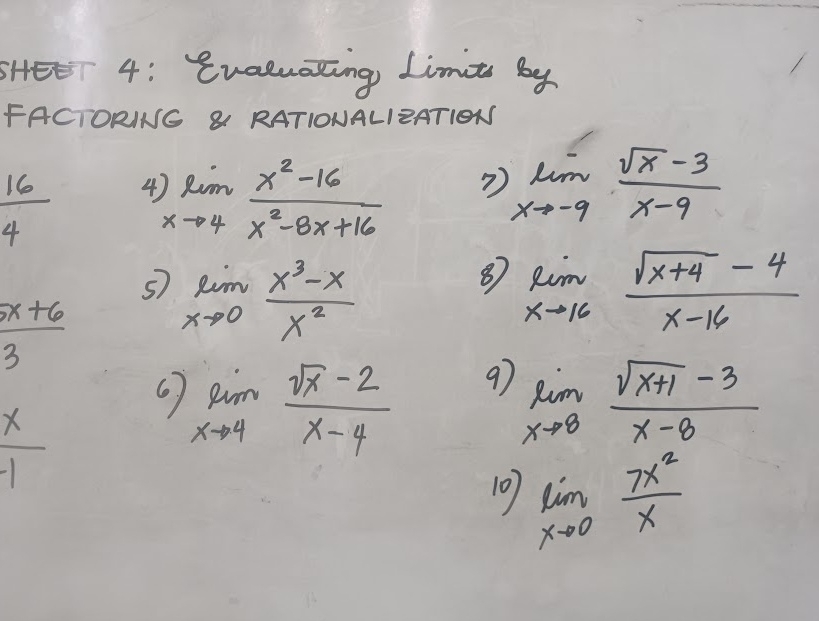 SHEET 4: Evaluating Limits by
FACTORING & RATIONALIZATION
16
4
5x+6
3
x
-1
4) lim x→4 (x²-16)/(x²-8x+16)
5) lim x→0 (x³-x)/x²
6) lim x→4 (√x -2)/(x-4)
7) lim x→-9 (√x -3)/(x-9)
8) lim x→16 (√x+4 - 4)/(x-16)
9) lim x→8 (√x+1 -3)/(x-8)
10) lim x→0 7x²/x